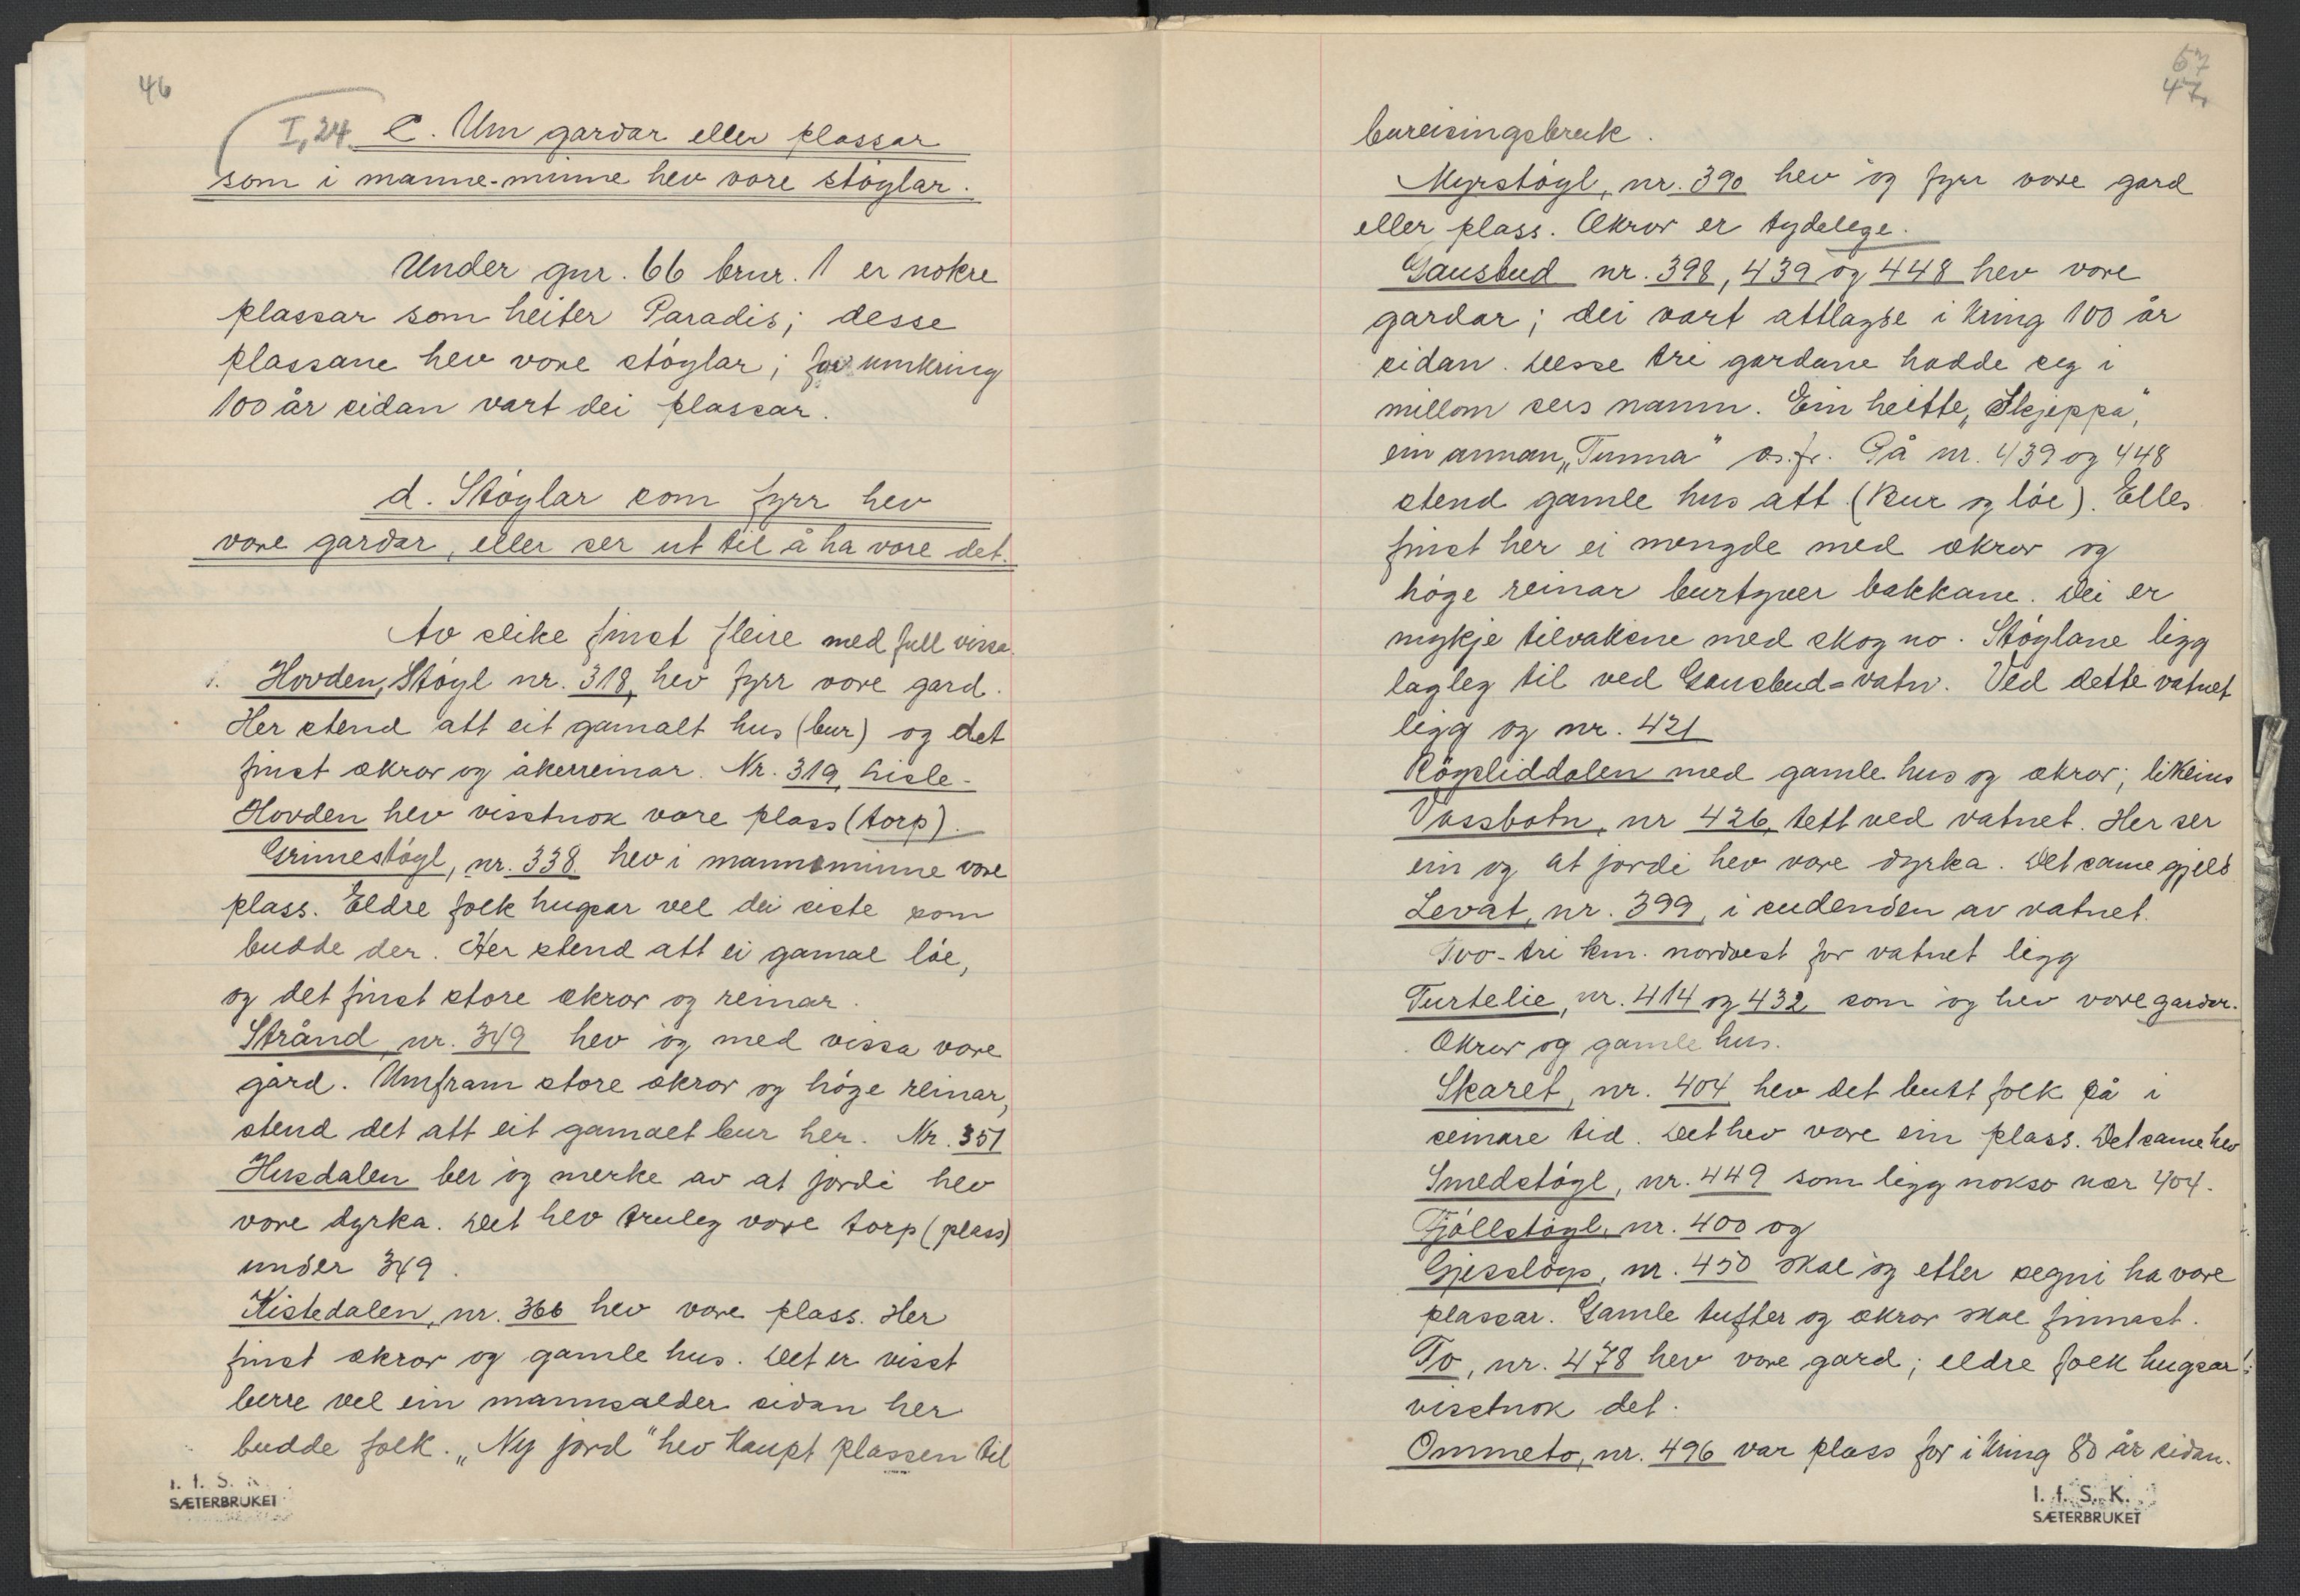 46
I, 24. c. Um gardar eller plassar
som i manne-minne hev vore stóylar.
Under gnr. 66 brnr. 1 er nokre
plassar som heiter Paradis; desse
plassane hev vore stóylar; for umkring
100 år sidan vart dei plassar.
d. Stóylar som fyrr hev
vore gardar, eller ser ut til å ha vore det.
Av slike finst fleire med full vissa.
1. Hovden, Stóyl nr. 318, hev fyrr vore gard.
Her stend att eit gamalt hus (bur) og det
finst økrar og åkerreinar. Nr. 319, Lisle-
Hovden hev visstnok vore plass (torp).
Grimestóyl, nr. 338. hev i mannsminne vore
plass. Eldre folk hugsar vel dei siste som
budde der. Her stend att ei gamal lóe,
og det finst store økrar og reinar.
Strånd, nr. 349 hev óg med vissa vore
gard. Umfram store økrar og hóge reinar,
stend det att eit gamalt bur her. Nr. 351
Husdalen ber óg merke av at jordi hev
vore dyrka. Det hev truleg vore torp (plass)
under 349.
Kistedalen, nr. 366 hev vore plass. Her
finst økrar og gamle hus. Det er visst
berre vel ein mannsalder sidan her
budde folk. „Ny jord" hev kaupt plassen til
I. f. S. K.
SÆTERBRUKET
57
47.
bureisingsbruk.
Myrstóyl, nr. 390 hev óg fyrr vore gard
eller plass. Økrar er tydelege.
Gausbud nr. 398, 439 og 448 hev vore
gardar; dei vart attlagde i kring 100 år
sidan. Desse tri gardane hadde seg i
millom sers namn. Ein heitte „Skjeppa",
ein annan „Tunna" o.s.fr. På nr. 439 og 448
stend gamle hus att (Bur og lóe). Elles
finst her ei mengde med økrar og
hóge reinar burtyver bakkane. Dei er
mykje tilvaksne med skog no. Stóylane ligg
lagleg til ved Gausbud=vatn. Ved dette vatnet
ligg og nr. 421
Róysliddalen med gamle hus og økrar; likeins
Vassbotn, nr 426, tett ved vatnet. Her ser
ein og at jordi hev vore dyrka. Det same gjeld
Levat, nr. 399, i sudenden av vatnet.
Tvo-tri km. nordvest for vatnet ligg
Turtelie, nr. 414 og 432 som óg hev vore gardar.
Økrar og gamle hus.
Skaret, nr. 404 hev det butt folk på i
seinare tid. Det hev vore ein plass. Det same hev
Smedstóyl, nr. 449 som ligg nokso nær 404.
Fjóllstóyl, nr. 400 og
nr. 450 skal óg etter segni ha vore
plassar. Gamle tufter og økrar skal finnast.
To, nr. 478 hev vore gard; eldre folk hugsar
visstnok det.
Ommeto, nr. 496 var plass for i kring 80 år sidan.
I. f. S. K.
SÆTERBRUKET